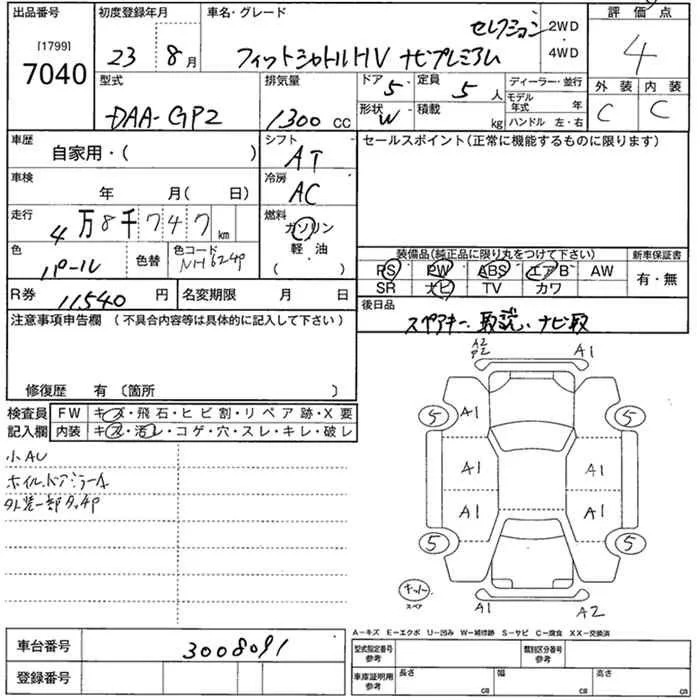 出品番号 初度登録年月 車名・グレード 評価点
[1799]
7040
23 年 8 月
フィットシャトルHV ナビプレミアム
セレクション
2WD
・
4WD
4
型式 排気量 ドア 5 定員 5 人 ディーラー・並行 外装 内装
DAA-GP2 1300 CC 形状 W 積載 kg モデル年式 年 C C
ハンドル 左・右
車歴 シフト セールスポイント(正常に機能するものに限ります)
自家用・( ) AT
車検 冷房
年 月( 日) AC
走行 燃料
4万8千747 km ガソリン
・
色 色替 色コード 軽油
パール NH624P ( )
装備品(純正品に限り丸をつけて下さい) 新車保証書
PS PW ABS エアB AW 有・無
SR ナビ TV カワ
R券 11540 円 名変期限 月 日
後日品
スペアキー、取説、ナビ取
注意事項申告欄 (不具合内容等は具体的に記入して下さい)
修復歴 有 〔箇所 〕
検査員 FW キズ・飛石・ヒビ割・リペア跡・X要
記入欄 内装 キズ・汚レ・コゲ・穴・スレ・キレ・破レ
小AU
ホイル、ドアミラーA
外装一部タッチP
A2
P2
A1
5 A1 5
A1 A1
A1 A1
5 5
キット
スペア
A1 A2
A-キズ E-エクボ U-凹み W-補修跡 S-サビ C-腐食 XX-交換済
車台番号 3008091
型式指定番号 参考 類別区分番号 参考
登録番号
車庫証明用 参考 長さ cm 幅 cm 高さ cm